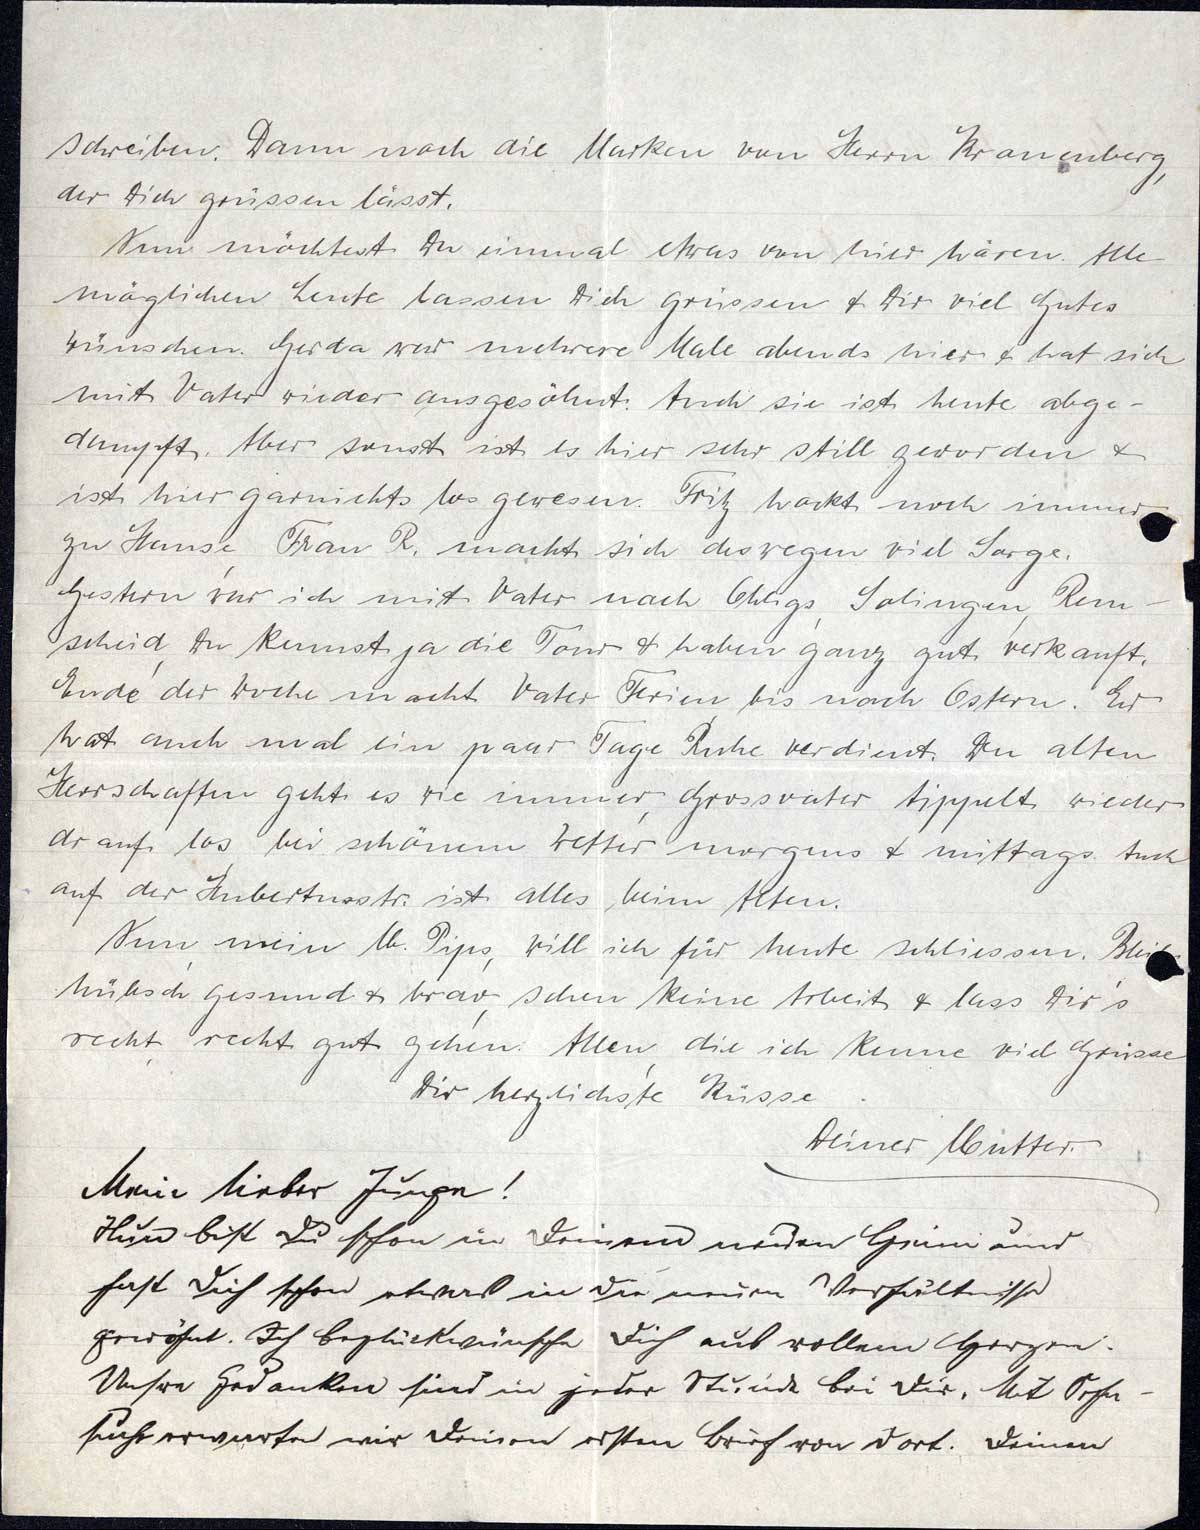 schreiben. Dann noch die Marken von Herrn Kranenberg,
der Dich grüssen lässt.
Nun möchtest Du einmal etwas von hier hören. Alle
möglichen Leute lassen Dich grüssen & Dir viel Gutes
wünschen. Gerda war mehrere Male abends hier & hat sich
mit Vater wieder ausgesöhnt. Auch sie ist heute abge-
dampft. Aber sonst ist es hier sehr still geworden &
ist hier garnichts los gewesen. Fritz hockt noch immer
zu Hause, Frau R. macht sich deswegen viel Sorge.
Gestern war ich mit Vater nach Ohligs, Solingen, Rem-
scheid, Du kennst ja die Tour & haben ganz gut verkauft.
Ende der Woche macht Vater Ferien bis nach Ostern. Er
hat auch mal ein paar Tage Ruhe verdient. Den alten
Herrschaften geht es wie immer, Grossvater tippelt wieder
drauf los, bei schönem Wetter morgens & mittags. Auch
auf der Hubertusstr. ist alles beim Alten.
Nun, mein lb. Pips, will ich für heute schliessen. Bleib
hübsch gesund & brav, scheu keine Arbeit & lass Dir's
recht, recht gut gehen. Allen, die ich kenne viel Grüsse
Dir herzlichste Küsse
Deiner Mutter.
Mein lieber Junge!
Nun bist Du schon in Deinem neuen Heim und
hast Dich schon etwas in die neuen Verhältnisse
gewöhnt. Ich beglückwünsche Dich aus vollem Herzen.
Unsre Gedanken sind in jeder Stunde bei Dir. Mit Sehn-
sucht erwarten wir Deinen ersten Brief von dort. Deinen